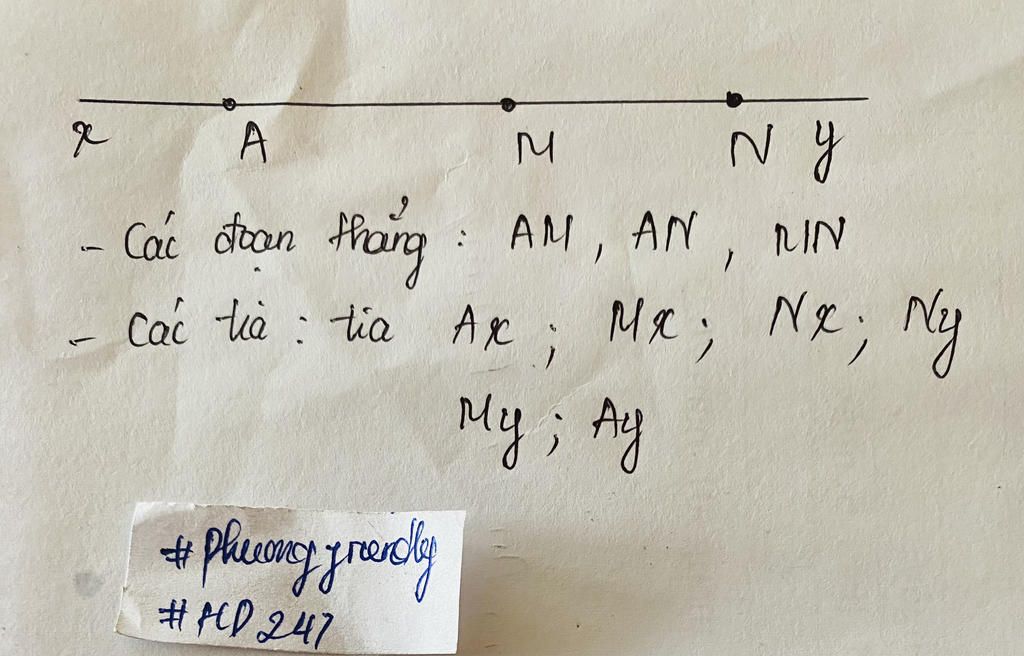 x A M N y
- Các đoạn thẳng : AM , AN , MN
- Các tia : tia Ax ; Mx ; Nx ; Ny
My ; Ay
#phuonggrendly
#HD247